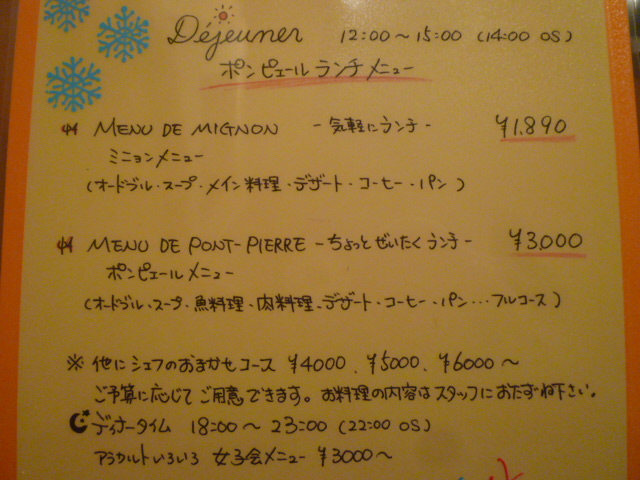 Déjeuner 12:00～15:00 (14:00 OS)
ポンピエール ランチメニュー
MENU DE MIGNON -気軽にランチ- ¥1.890
ミニョンメニュー
(オードブル・スープ・メイン料理・デザート・コーヒー・パン)
MENU DE PONT-PIERRE -ちょっとぜいたくランチ- ¥3,000
ポンピエールメニュー
(オードブル・スープ・魚料理・肉料理・デザート・コーヒー・パン…フルコース)
※ 他にシェフのおまかせコース ¥4000、¥5000、¥6000～
ご予算に応じてご用意できます。お料理の内容はスタッフにおたずね下さい。
ディナータイム 18:00～23:00 (22:00 OS)
アラカルトいろいろ 女子会メニュー ¥3000～